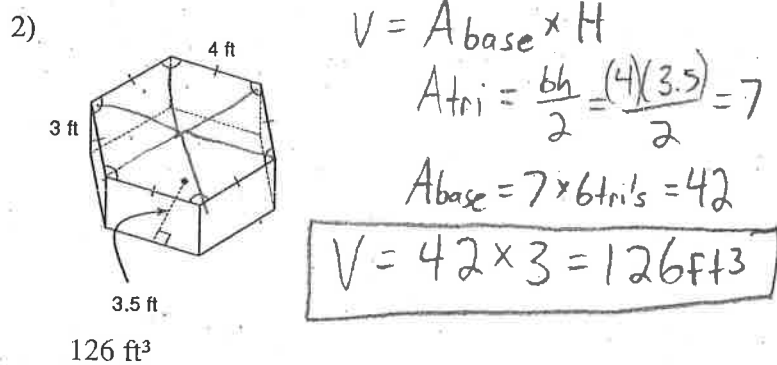 2)
4 ft
3 ft
3.5 ft
126 ft³
V = Abase × H
Atri = bh/2 = (4)(3.5)/2 = 7
Abase = 7 × 6tri's = 42
V = 42 × 3 = 126ft3